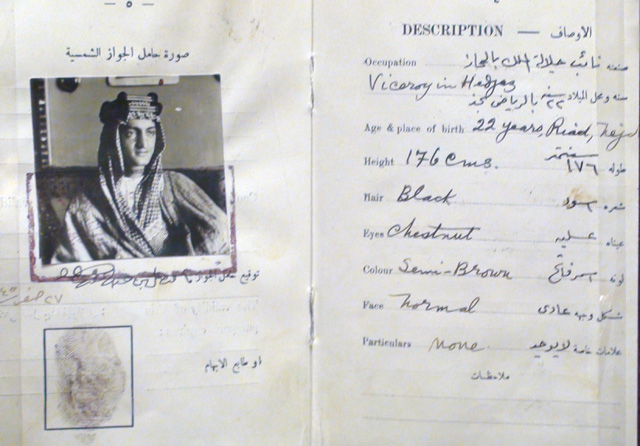 — ٥ —
صورة حامل الجواز الشمسية
توقيع حامل الجواز
او طابع الابهام
DESCRIPTION — الاوصاف
Occupation نائب جلالة الملك بالحجاز صنعته
Viceroy in Hedjaz
٢٢ سنة بالرياض نجد سنه ومحل الميلاد
Age & place of birth 22 years, Riad, Nejd
Height 176 cms. ١٧٦ سنتمتر طوله
Hair Black اسود شعره
Eyes Chestnut عسلية عيناه
Colour Semi-Brown اسمر فاتح لونه
Face Normal عادى شكل وجهه
Particulars none لا يوجد علامات خاصة
ملاحظات